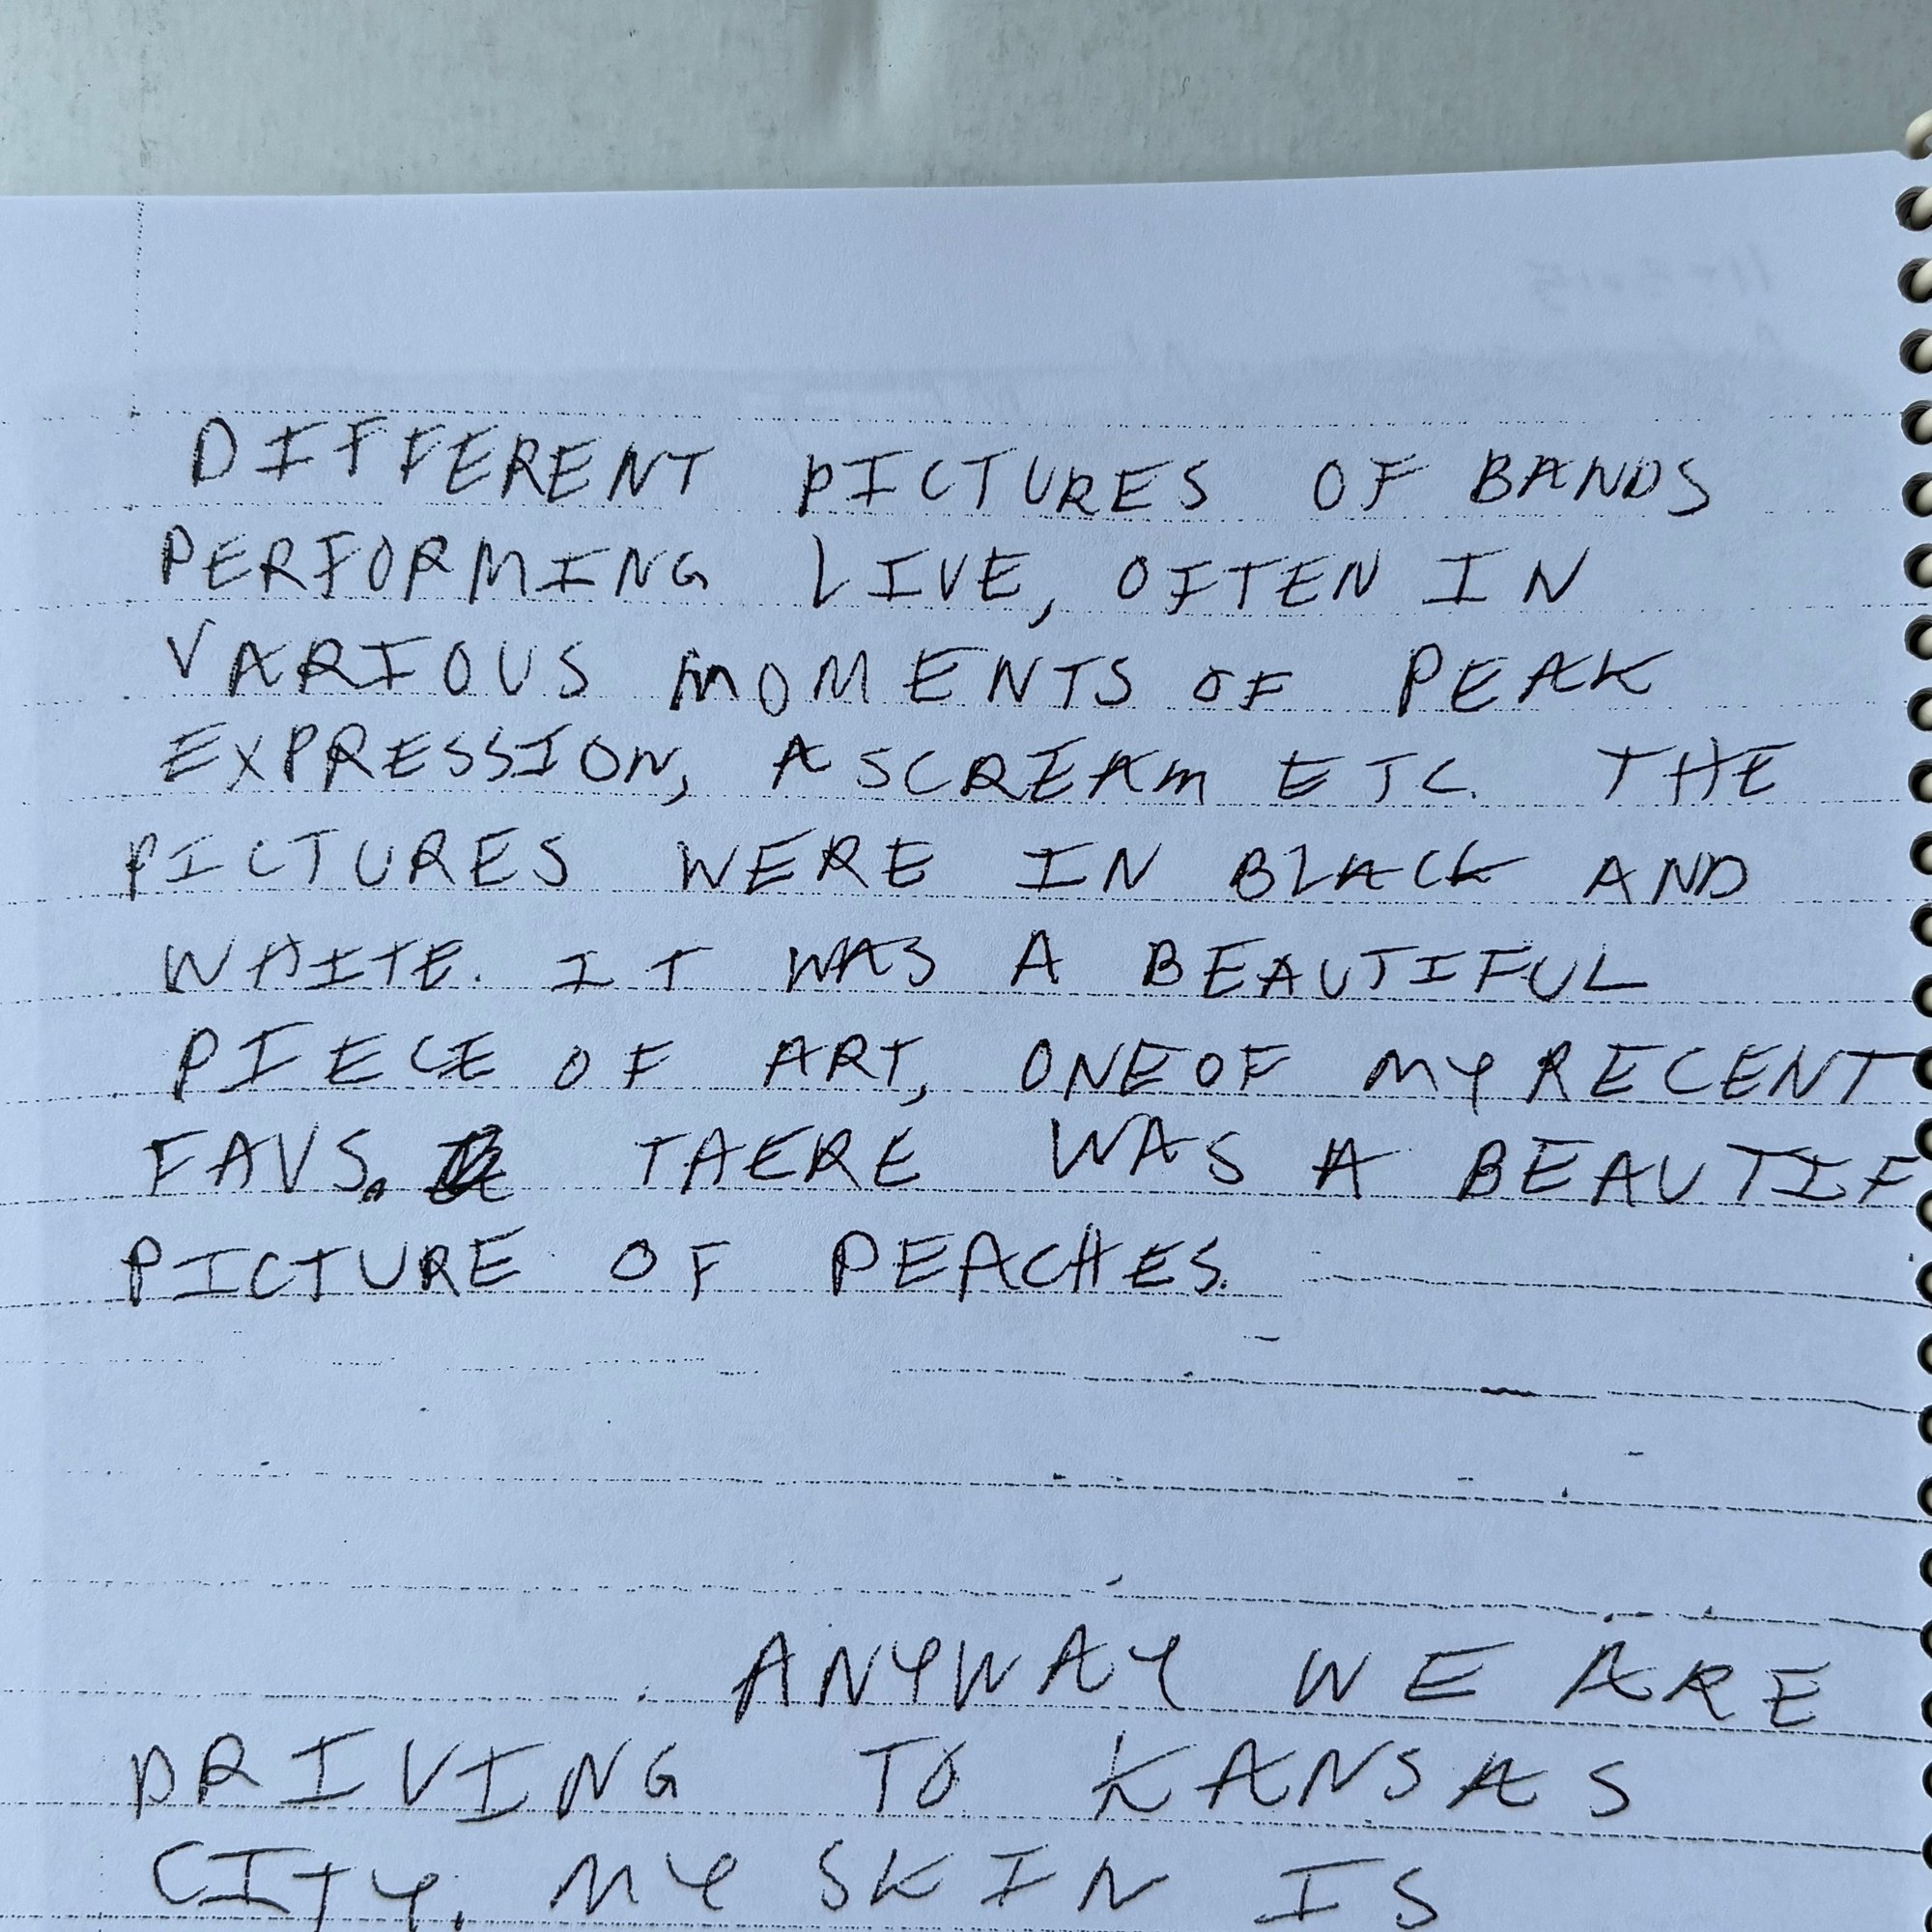 DIFFERENT PICTURES OF BANDS
PERFORMING LIVE, OFTEN IN
VARIOUS MOMENTS OF PEAK
EXPRESSION, A SCREAM ETC. THE
PICTURES WERE IN BLACK AND
WHITE. IT WAS A BEAUTIFUL
PIECE OF ART, ONE OF MY RECENT
FAVS. THERE WAS A BEAUTIF
PICTURE OF PEACHES.
ANYWAY WE ARE
DRIVING TO KANSAS
CITY. MY SKIN IS